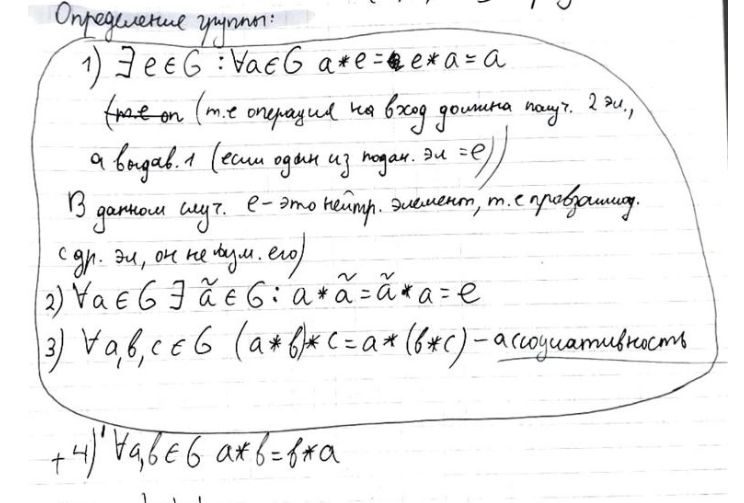 Определение группы:
1) ∃ e ∈ G : ∀a ∈ G a * e = e * a = a
(т.е оп (т.е операция на вход должна получ. 2 эл.,
а выдав. 1 (если один из подан. эл = e))
В данном случ. e – это нейтр. элемент, т.е провзаимод.
с др. эл, он не изм. его)
2) ∀a ∈ G ∃ ã ∈ G : a * ã = ã * a = e
3) ∀a,b,c ∈ G (a * b) * c = a * (b * c) – ассоциативность
+ 4) ∀a,b ∈ G a * b = b * a